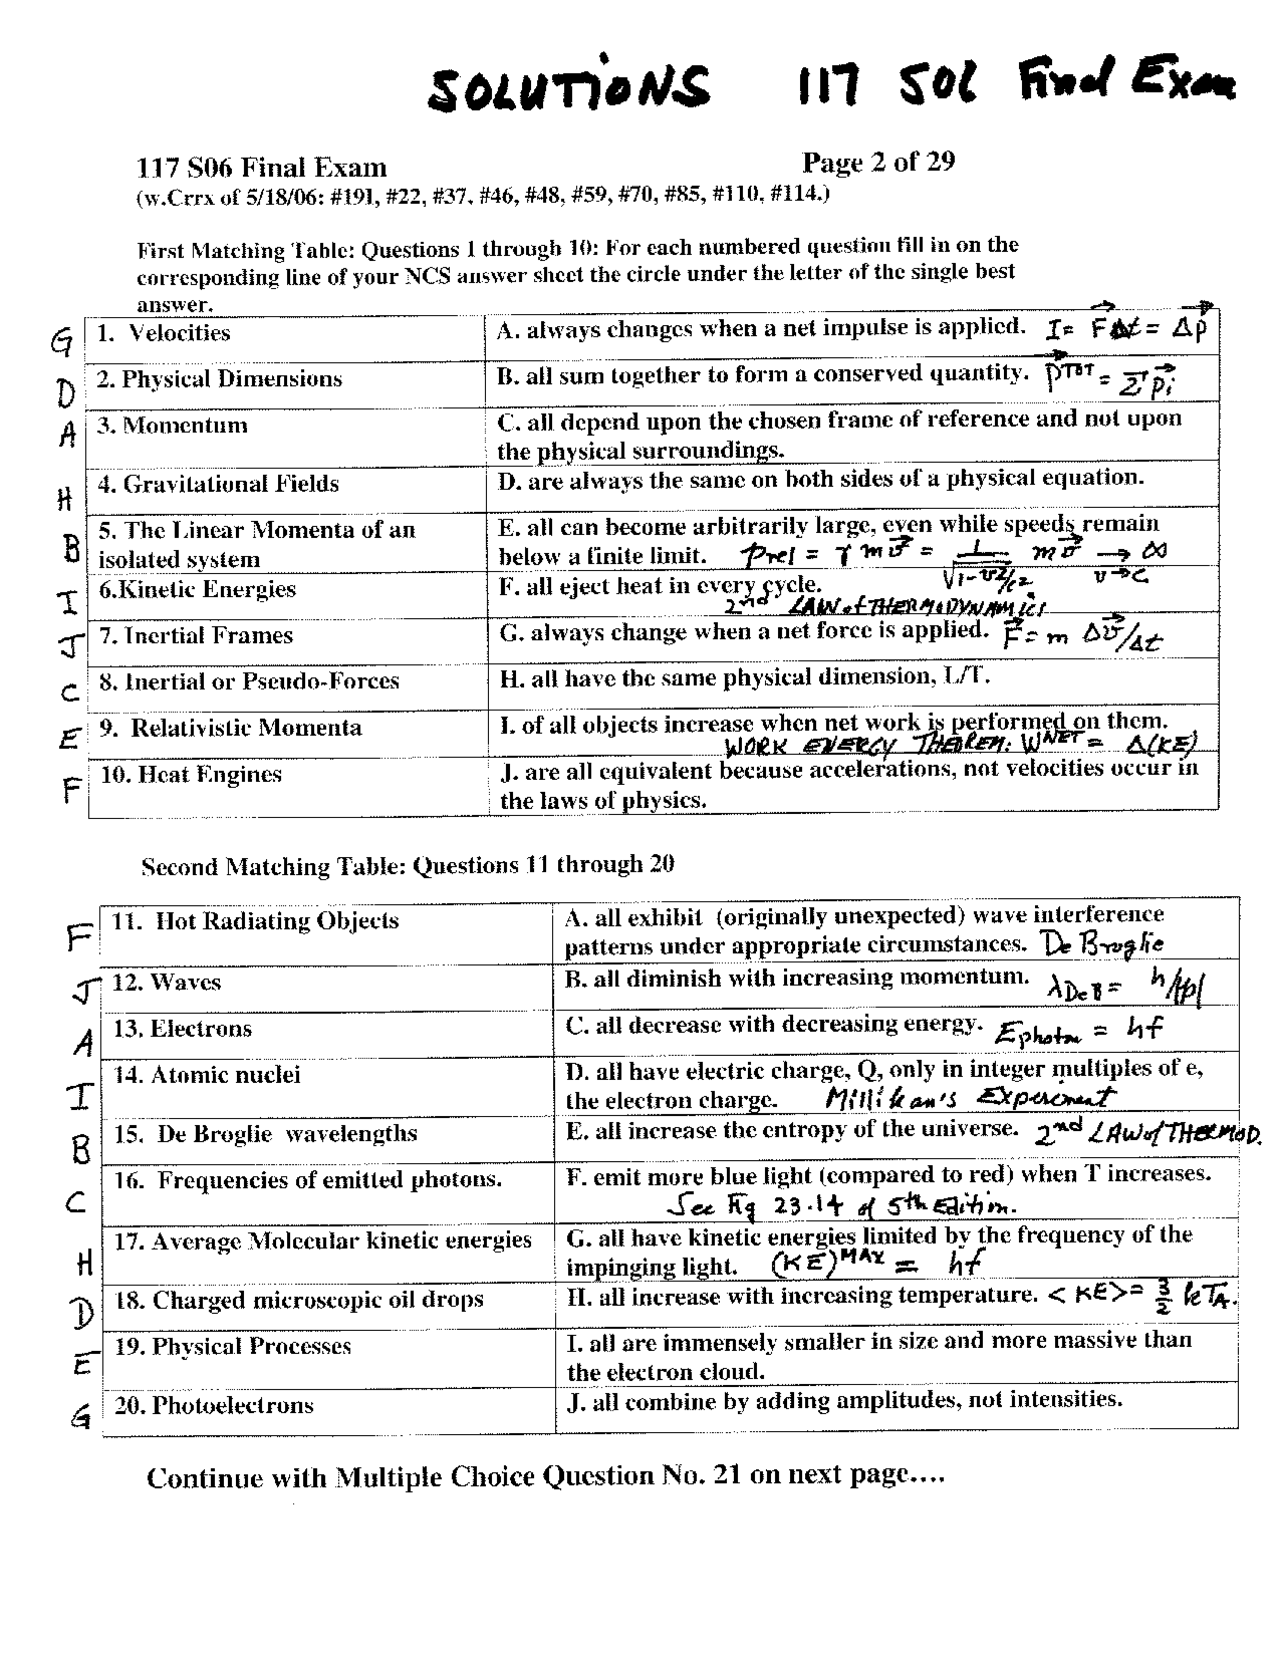 SOLUTIONS 117 S06 Final Exam
117 S06 Final Exam Page 2 of 29
(w.Crrx of 5/18/06: #191, #22, #37, #46, #48, #59, #70, #85, #110, #114.)
First Matching Table: Questions 1 through 10: For each numbered question fill in on the
corresponding line of your NCS answer sheet the circle under the letter of the single best
answer.
G 1. Velocities A. always changes when a net impulse is applied. I = F⃗Δt = Δp⃗
D 2. Physical Dimensions B. all sum together to form a conserved quantity. p⃗ᵀᴼᵀ = Σp⃗ᵢ
A 3. Momentum C. all depend upon the chosen frame of reference and not upon
the physical surroundings.
H 4. Gravitational Fields D. are always the same on both sides of a physical equation.
B 5. The Linear Momenta of an E. all can become arbitrarily large, even while speeds remain
isolated system below a finite limit. p rel = γ m v⃗ = 1/√(1-v²/c²) m v⃗ → ∞ v→c
I 6.Kinetic Energies F. all eject heat in every cycle.
2nd LAW of THERMODYNAMICS
J 7. Inertial Frames G. always change when a net force is applied. F⃗ = m Δv⃗/Δt
C 8. Inertial or Pseudo-Forces H. all have the same physical dimension, L/T.
E 9. Relativistic Momenta I. of all objects increase when net work is performed on them.
WORK ENERGY THEOREM: W NET = Δ(KE)
F 10. Heat Engines J. are all equivalent because accelerations, not velocities occur in
the laws of physics.
Second Matching Table: Questions 11 through 20
F 11. Hot Radiating Objects A. all exhibit (originally unexpected) wave interference
patterns under appropriate circumstances. De Broglie
J 12. Waves B. all diminish with increasing momentum. λ DeB = h/|p|
A 13. Electrons C. all decrease with decreasing energy. E photon = hf
I 14. Atomic nuclei D. all have electric charge, Q, only in integer multiples of e,
the electron charge. Millikan's Experiment
B 15. De Broglie wavelengths E. all increase the entropy of the universe. 2nd LAW of THERMOD.
C 16. Frequencies of emitted photons. F. emit more blue light (compared to red) when T increases.
See Fig 23.14 of 5th Edition.
H 17. Average Molecular kinetic energies G. all have kinetic energies limited by the frequency of the
impinging light. (KE)MAX = hf
D 18. Charged microscopic oil drops H. all increase with increasing temperature. <KE> = 3/2 kTA.
E 19. Physical Processes I. all are immensely smaller in size and more massive than
the electron cloud.
G 20. Photoelectrons J. all combine by adding amplitudes, not intensities.
Continue with Multiple Choice Question No. 21 on next page....